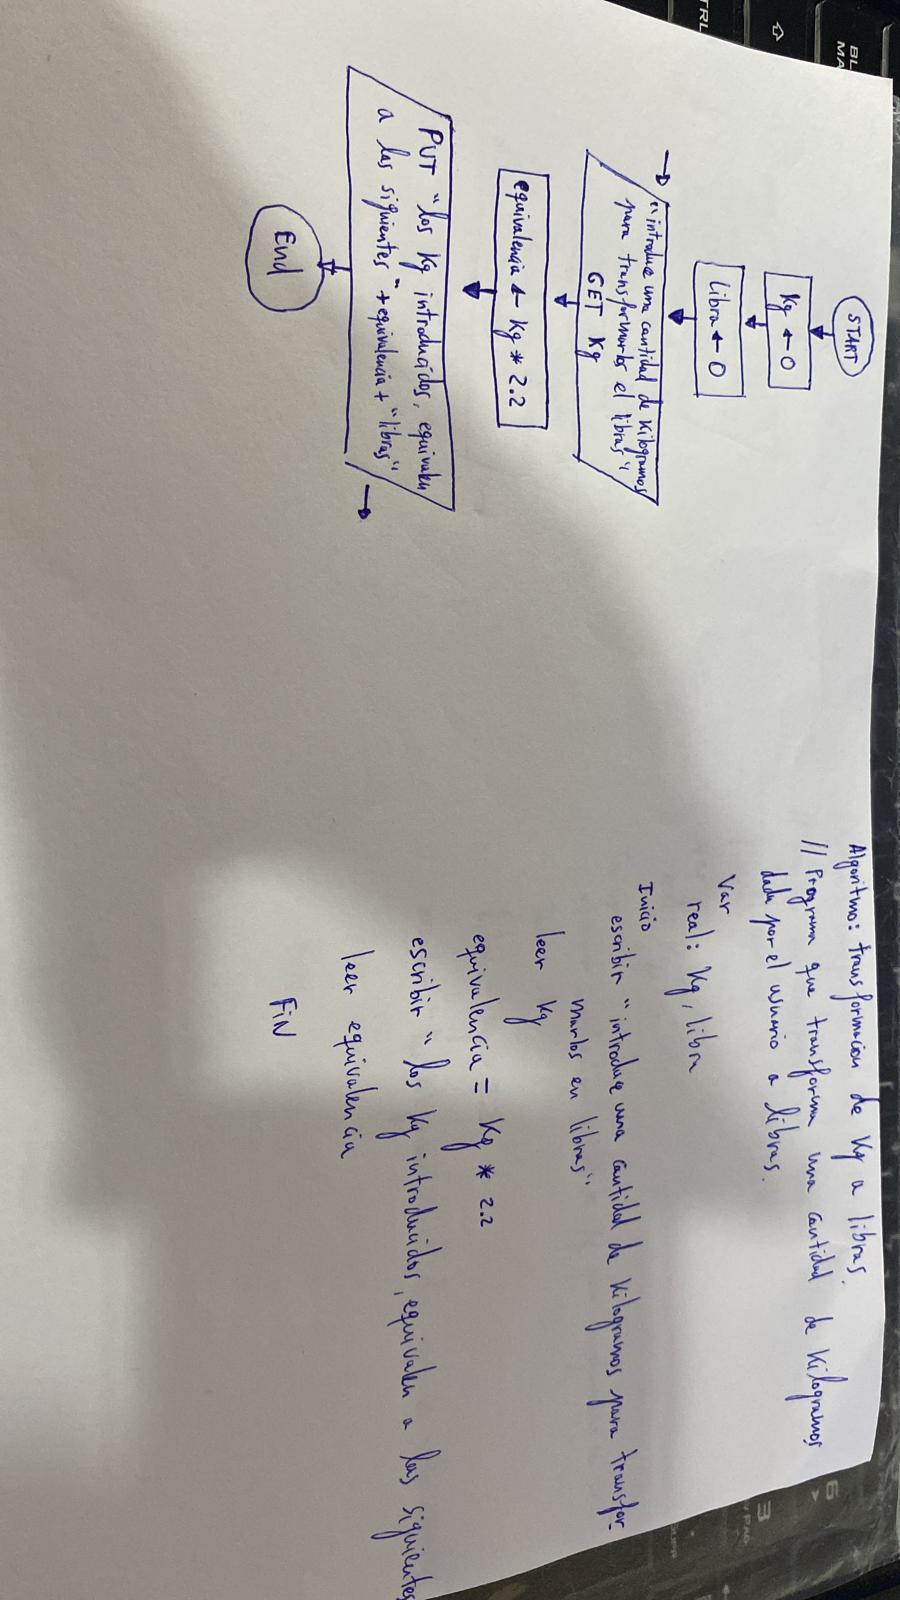 START
Kg ← 0
libra ← 0
"introduce una cantidad de Kilogramos
para transformarlos el libras"
GET Kg
equivalencia ← Kg * 2.2
PUT "los Kg introducidos, equivalen
a las siguientes" + equivalencia + "libras"
End
Algoritmo: transformacion de Kg a libras.
// Programa que transforma una cantidad de Kilogramos
dada por el usuario a libras.
Var
real: Kg, libra
Inicio
escribir "introduce una cantidad de Kilogramos para transfor-
marlos en libras"
leer Kg
equivalencia = Kg * 2.2
escribir "los Kg introducidos, equivalen a las siguientes
leer equivalencia
FiN
TRL
BL
MA
6
3